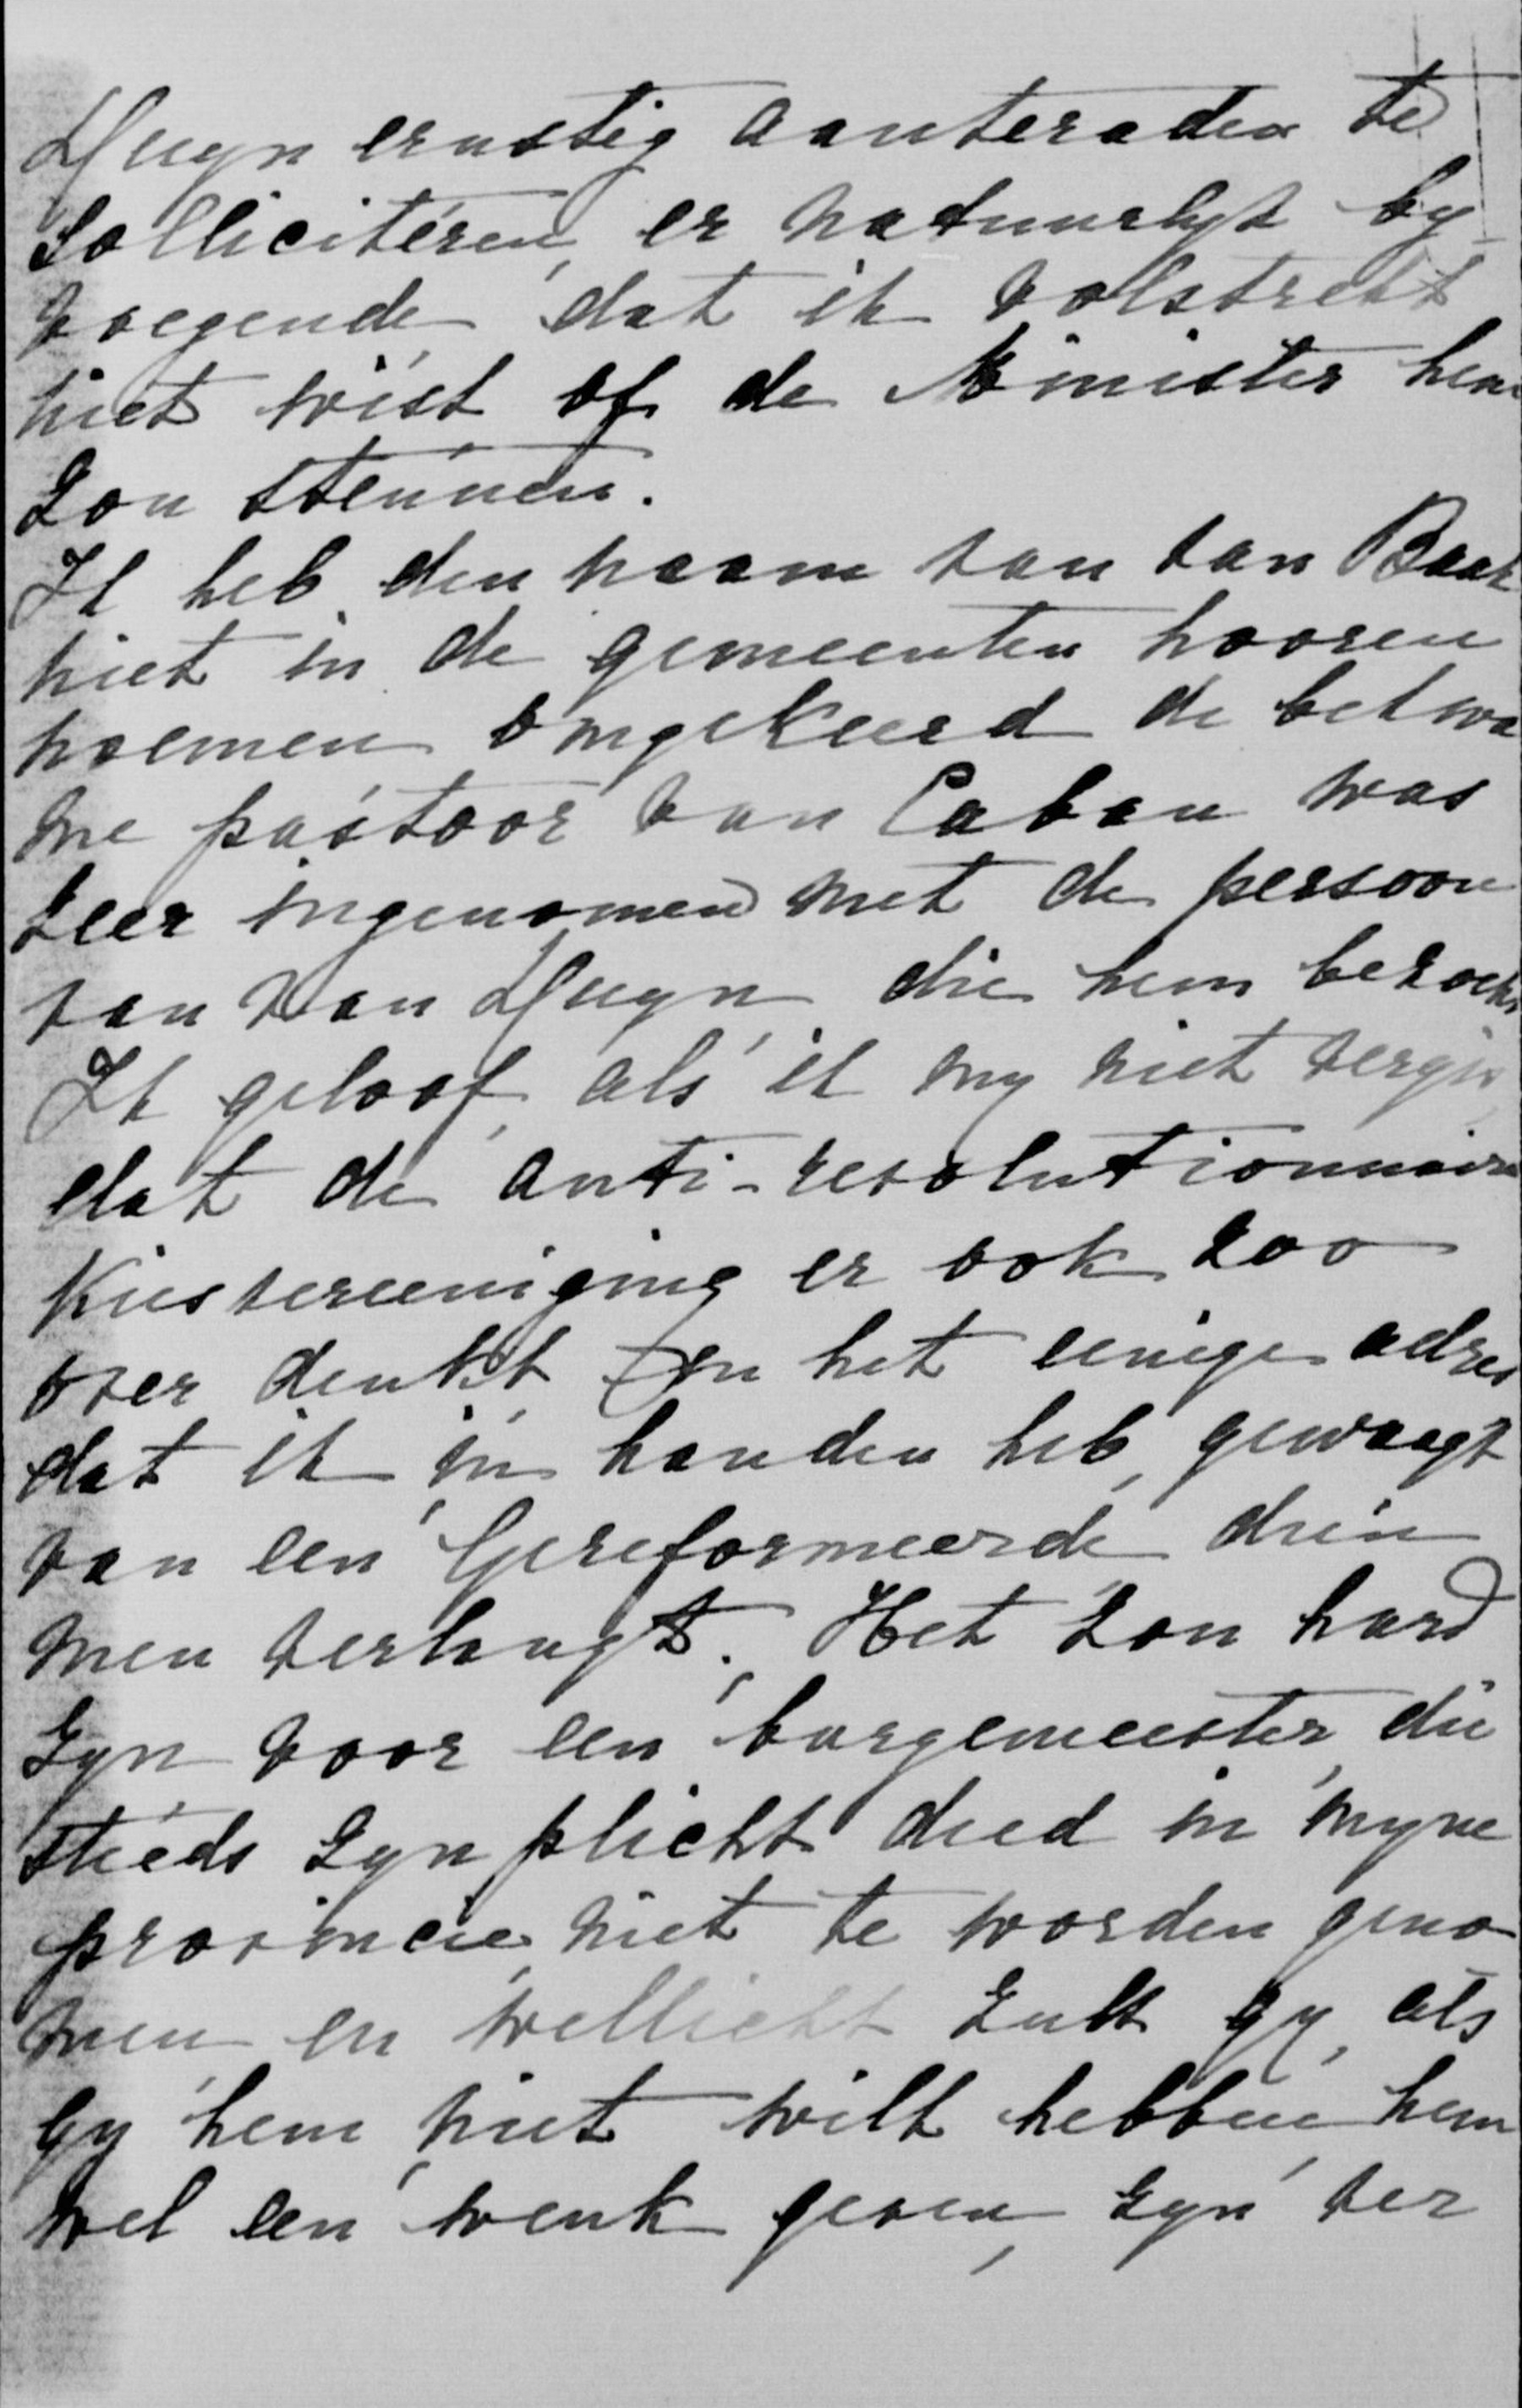 Huyn ernstig aanteraden te
Solliciteren, er natuurlyk by
voegende dat ik volstrekt
niet wist of de Minister hem
Zou steunen.
Ik heb den naam van van Baak
niet in de gemeenten hooren
noemen omgekeerd de bekwa
me pastoor van Cabau was
Zeer ingenomen met de persoon
van van Huyn, die hem bezocht
Ik geloof, als ik my niet vergis
dat de anti-revolutionnaire
Kiesvereeniging er ook zoo
over denkt, en het eenige adres
dat ik in handen heb, gewaagt
van een Gereformeerde, dien
men verlangt. Het zou hard
Zyn voor een burgemeester, die
steeds Zyn plicht deed in myne
provincie, niet te worden geno
men en wellicht Zult gy, als
Gy hem niet wilt hebben, hem
wel een wenk geven, Zyn ver